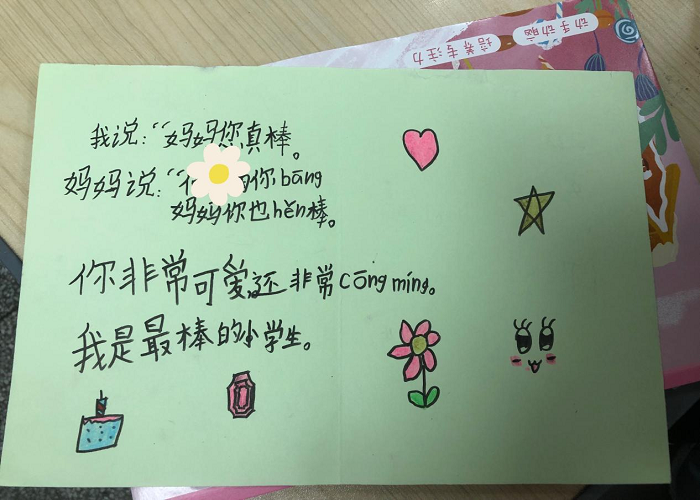 动手动脑
培养专注力
我说：“妈妈你真棒。
妈妈说：“的你bāng
妈妈你也hěn棒。
你非常可爱还非常cōng míng。
我是最棒的小学生。